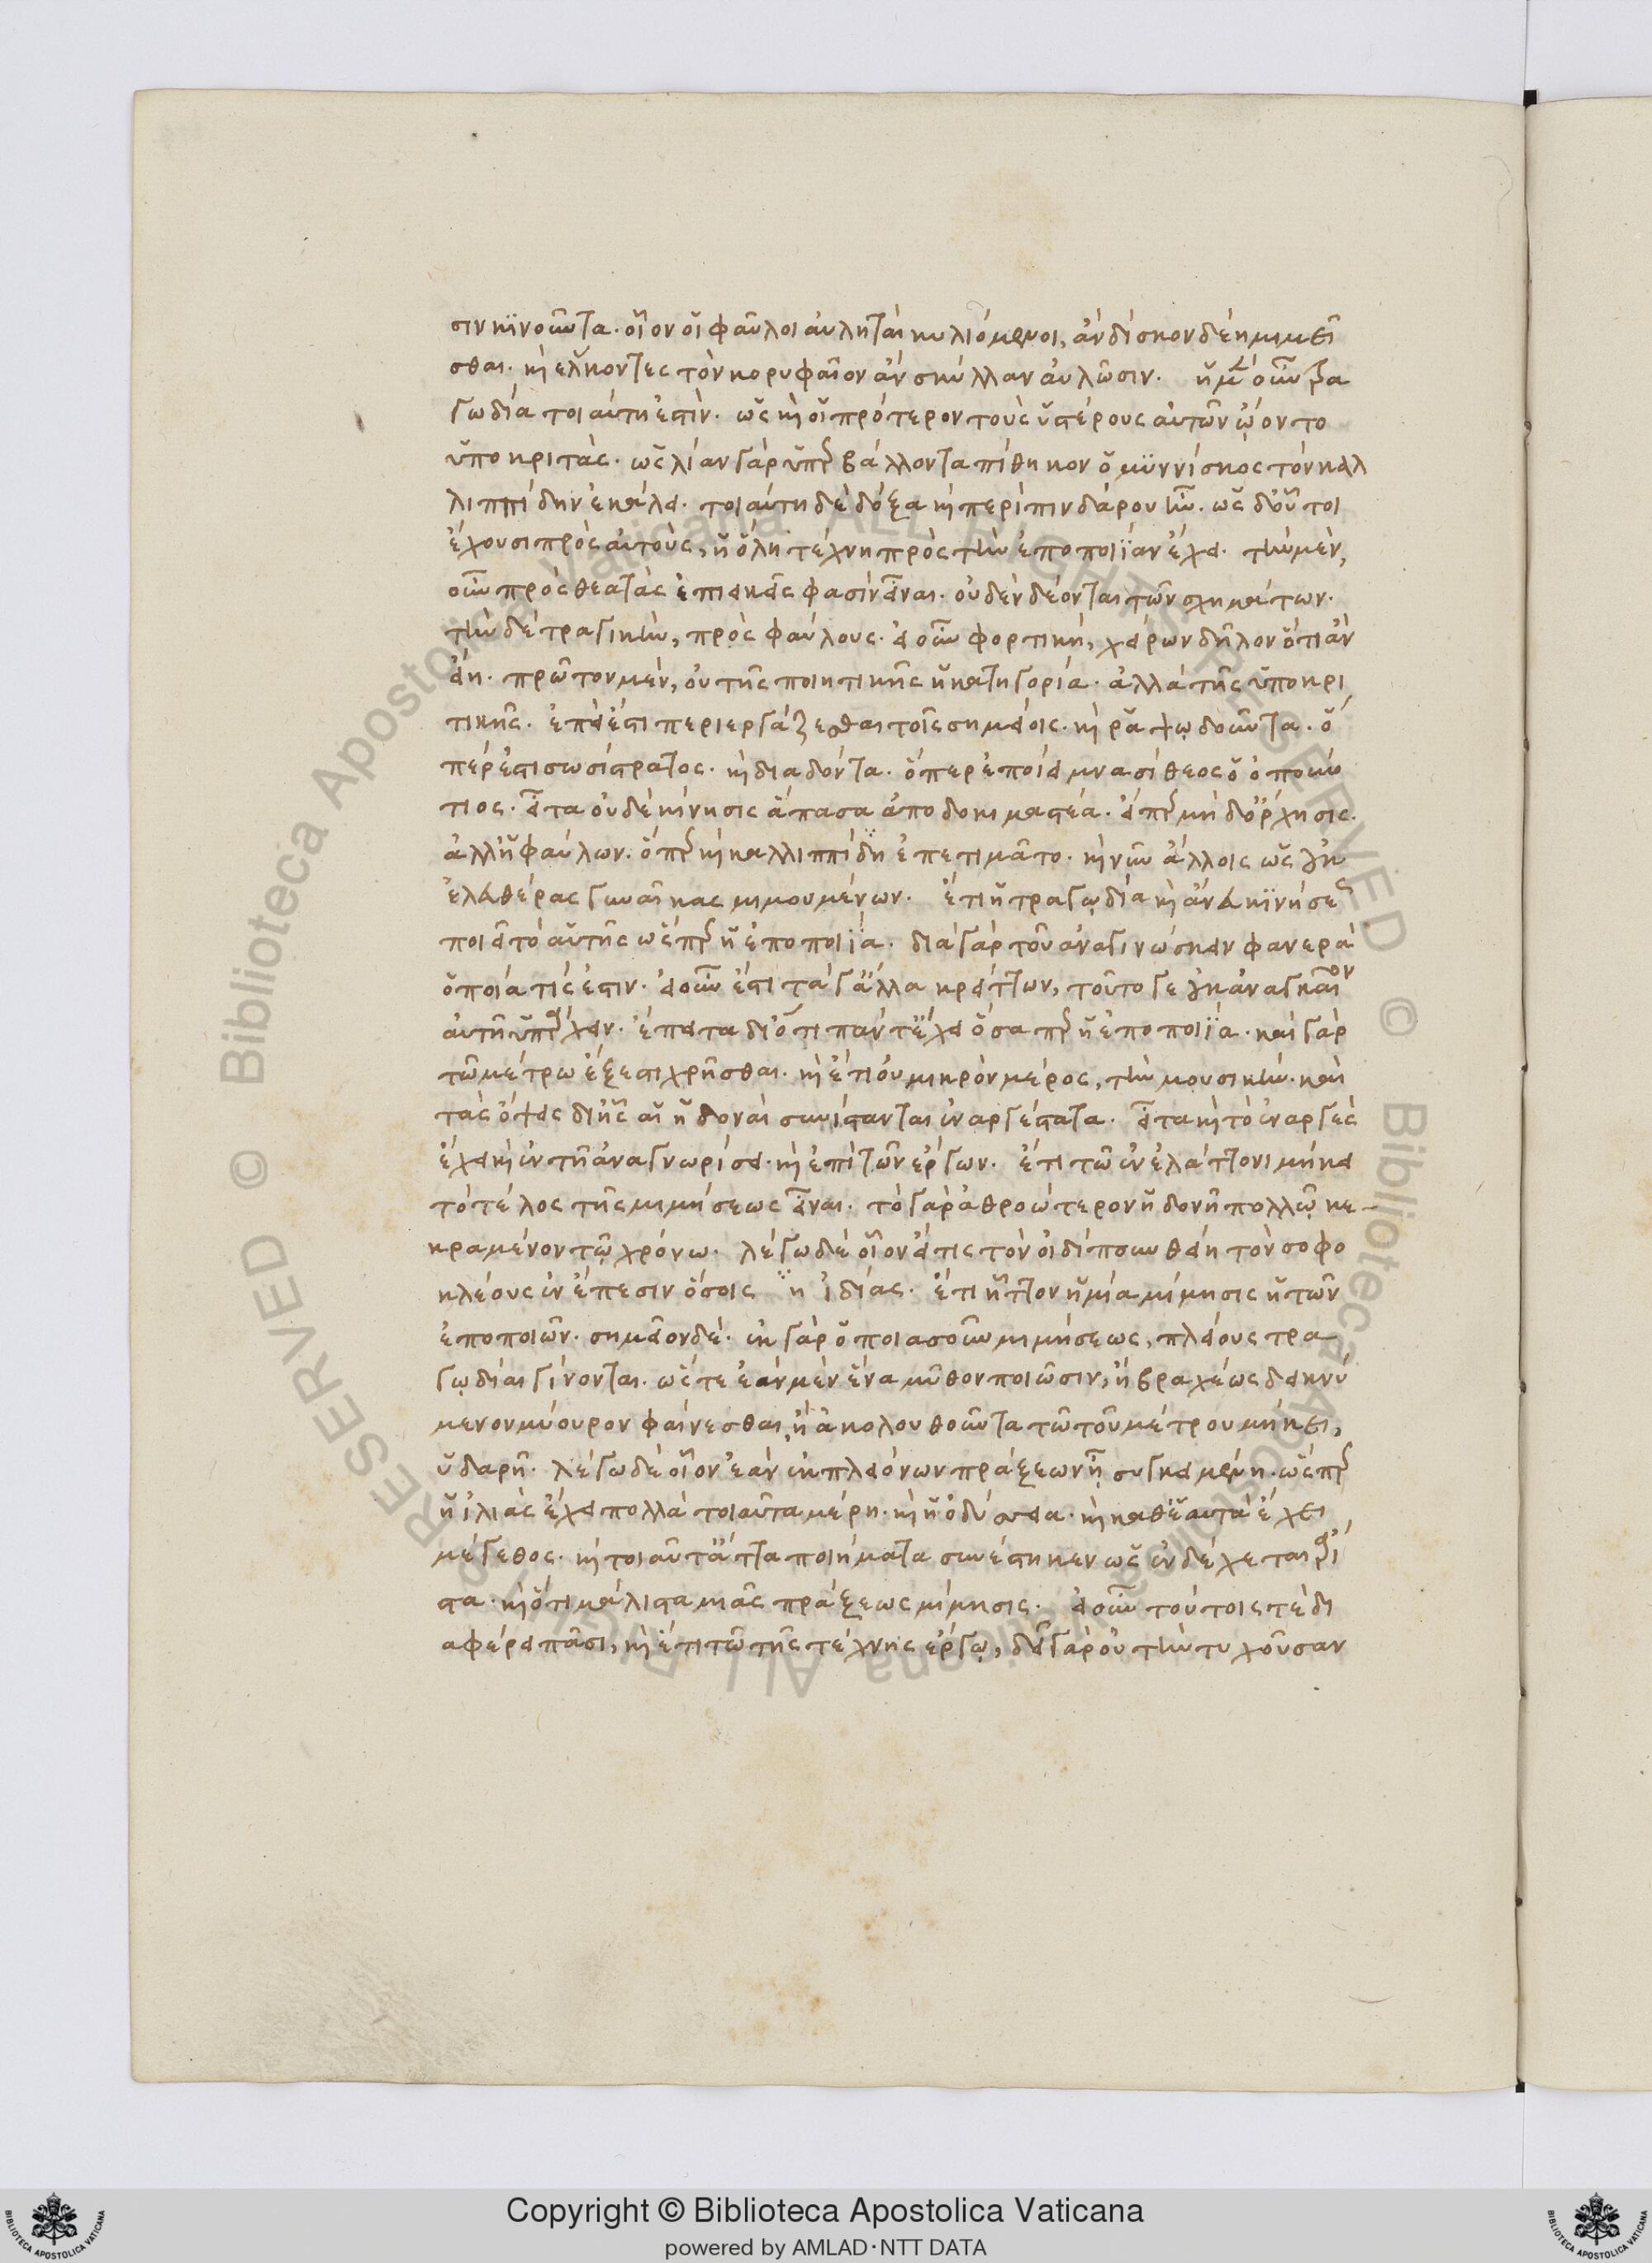 σιν κινοῦνται. οἷον οἱ φαῦλοι αὐληταὶ κυλιόμενοι, ἂν δίσκον δέῃ μιμεῖ
σθαι. καὶ ἕλκοντες τὸν κορυφαῖον ἂν σκύλλαν αὐλῶσιν. ἡ μὲν οὖν τρα
γωδία τοιαύτη ἐστὶν. ὡς καὶ οἱ πρότερον τοὺς ὑστέρους αὐτῶν ᾤοντο
ὑποκριτὰς. ὡς λίαν γὰρ ὑπερβάλλοντα πίθηκον ὁ μϋννίσκος τὸν καλ
λιππίδην ἐκάλει. τοιαύτη δὲ δόξα καὶ περὶ πινδάρου ἦν. ὡς δ' οὗτοι
ἔχουσι πρὸς αὐτοὺς, ἡ ὅλη τέχνη πρὸς τὴν ἐποποιΐαν ἔχει. τὴν μὲν,
οὖν πρὸς θεατὰς ἐπιεικεῖς φασὶν εἶναι. οὐδὲν δέονται τῶν σχημάτων.
τὴν δὲ τραγικὴν, πρὸς φαύλους. εἰ οὖν φορτικὴ, χείρων δῆλον ὅτι ἂν
εἴη. πρῶτον μὲν, οὐ τῆς ποιητικῆς ἡ κατηγορία. ἀλλὰ τῆς ὑποκρι
τικῆς. ἐπεὶ ἔστι περιεργάζεσθαι τοῖς σημείοις. καὶ ῥαψῳδοῦντα. ὅ
πέρ ἐστι σωσίστρατος. καὶ διαδόντα. ὅπερ ἐποίει μνασίθεος ὁ ὀπούν
τιος. εἶτα οὐδὲ κίνησις ἅπασα ἀποδοκιμαστέα. εἴπερ μὴ δ' ὄρχησις.
ἀλλ' ἡ φαύλων. ὅπερ καὶ καλλιππίδῃ ἐπετιμᾶτο. καὶ νῦν ἄλλοις ὡς οὐκ
ἐλευθέρας γυναῖκας μιμουμένων. ἔτι ἡ τραγῳδία καὶ ἄνευ κϊνήσεως
ποιεῖ τὸ αὑτῆς ὥσπερ ἡ ἐποποιΐα. διὰ γὰρ τοῦ ἀναγινώσκειν φανερὰ
ὁποία τίς ἐστιν. εἰ οὖν ἐστι τά γ' ἄλλα κρείττων, τοῦτό γε οὐκ ἀναγκαῖον
αὐτῇ ὑπάρχειν. ἔπειτα διότι πάντ' ἔχει ὅσαπερ ἡ ἐποποιΐα. καὶ γὰρ
τῶ μέτρω ἔξεστι χρῆσθαι. καὶ ἔτι οὐ μικρὸν μέρος, τὴν μουσικὴν. καὶ
τὰς ὄψεις δι' ἧς αἱ ἡδοναὶ συνίστανται ἐναργέστατα. εἶτα καὶ τὸ ἐναργὲς
ἔχει καὶ ἐν τῆ ἀναγνωρίσει. καὶ ἐπὶ τῶν ἔργων. ἔτι τῶ ἐν ἐλάττονι μήκει
τὸ τέλος τῆς μιμήσεως εἶναι. τὸ γὰρ ἀθροώτερον ἡδονῆ πολλῷ κε-
κραμένον τῷ χρόνω. λέγω δὲ οἷον εἴ τις τὸν οἰδίπουν θείη τὸν σοφο
κλέους ἐν ἔπεσιν ὅσοις ἡ ἰδίας. ἔτι ἧττον ἡ μία μίμησις ἡ τῶν
ἐποποιῶν. σημεῖον δέ. ἐκ γὰρ ὁποιασοῦν μιμήσεως, πλείους τρα
γῳδίαι γίνονται. ὥστε ἐὰν μὲν ἕνα μῦθον ποιῶσιν, ἢ βραχέως δεικνύ
μενον μύουρον φαίνεσθαι, ἢ ἀκολουθοῦντα τῶ τοῦ μέτρου μήκει,
ὑδαρῆ. λέγω δὲ οἷον ἐὰν ἐκ πλειόνων πράξεων ᾖ συγκειμένη. ὥσπερ
ἡ ἰλιὰς ἔχει πολλὰ τοιαῦτα μέρη. καὶ ἡ ὀδύσσεια. καὶ καθ' ἑαυτὰ ἔχει
μέγεθος. καὶ τοιαῦτ' ἄττα ποιήματα συνέστηκεν ὡς ἐνδέχεται ἄρι
στα. καὶ ὅτι μάλιστα μιᾶς πράξεως μίμησις. εἰ οὖν τούτοις τὲ δι
αφέρει πᾶσι, καὶ ἔτι τῶ τῆς τέχνης ἔργῳ, δεῖ γὰρ οὐ τὴν τυχοῦσαν
© Biblioteca Apostolica Vaticana ALL RIGHTS RESERVED © Biblioteca Apostolica Vaticana ALL RIGHTS RESERVED
Copyright © Biblioteca Apostolica Vaticana
powered by AMLAD·NTT DATA
BIBLIOTECA APOSTOLICA VATICANA
BIBLIOTECA APOSTOLICA VATICANA